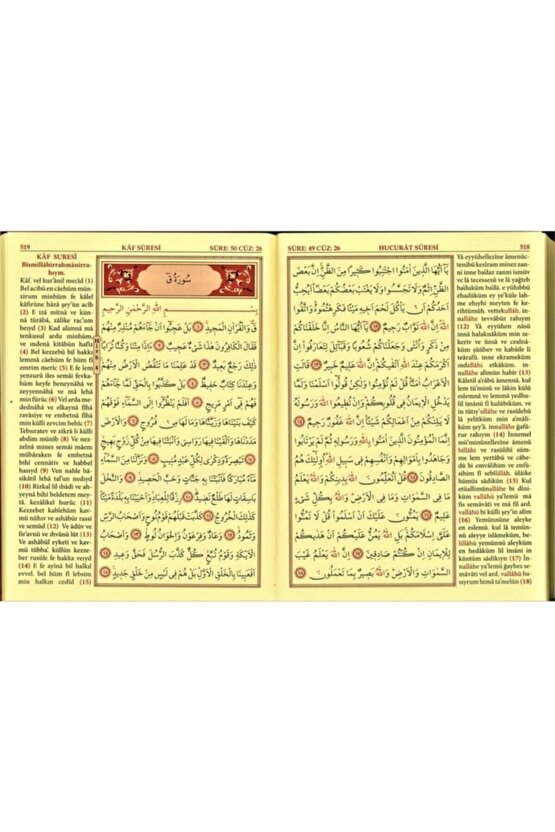 SÛRE: 49 CÜZ: 26 HUCURÂT SÛRESİ 518
يَآ اَيُّهَا الَّذِينَ اٰمَنُوا اجْتَنِبُوا كَثِيرًا مِنَ الظَّنِّ اِنَّ بَعْضَ
الظَّنِّ اِثْمٌ وَلَا تَجَسَّسُوا وَلَا يَغْتَبْ بَعْضُكُمْ بَعْضًا اَيُحِبُّ
اَحَدُكُمْ اَنْ يَاْكُلَ لَحْمَ اَخِيهِ مَيْتًا فَكَرِهْتُمُوهُ وَاتَّقُوا
اللّٰهَ اِنَّ اللّٰهَ تَوَّابٌ رَحِيمٌ ﴿١٢﴾ يَآ اَيُّهَا النَّاسُ اِنَّا خَلَقْنَاكُمْ
مِنْ ذَكَرٍ وَاُنْثٰى وَجَعَلْنَاكُمْ شُعُوبًا وَقَبَآئِلَ لِتَعَارَفُوا اِنَّ
اَكْرَمَكُمْ عِنْدَ اللّٰهِ اَتْقٰيكُمْ اِنَّ اللّٰهَ عَلِيمٌ خَبِيرٌ ﴿١٣﴾ قَالَتِ
الْاَعْرَابُ اٰمَنَّا قُلْ لَمْ تُؤْمِنُوا وَلٰكِنْ قُولُوا اَسْلَمْنَا وَلَمَّا
يَدْخُلِ الْاِيمَانُ فِى قُلُوبِكُمْ وَاِنْ تُطِيعُوا اللّٰهَ وَرَسُولَهُ
لَا يَلِتْكُمْ مِنْ اَعْمَالِكُمْ شَيْئًا اِنَّ اللّٰهَ غَفُورٌ رَحِيمٌ ﴿١٤﴾
اِنَّمَا الْمُؤْمِنُونَ الَّذِينَ اٰمَنُوا بِاللّٰهِ وَرَسُولِهِ ثُمَّ لَمْ يَرْتَابُوا
وَجَاهَدُوا بِاَمْوَالِهِمْ وَاَنْفُسِهِمْ فِى سَبِيلِ اللّٰهِ اُولٰٓئِكَ هُمُ
الصَّادِقُونَ ﴿١٥﴾ قُلْ اَتُعَلِّمُونَ اللّٰهَ بِدِينِكُمْ وَاللّٰهُ يَعْلَمُ مَا فِى
السَّمٰوَاتِ وَمَا فِى الْاَرْضِ وَاللّٰهُ بِكُلِّ شَىْءٍ
عَلِيمٌ ﴿١٦﴾ يَمُنُّونَ عَلَيْكَ اَنْ اَسْلَمُوا قُلْ لَا تَمُنُّوا
عَلَىَّ اِسْلَامَكُمْ بَلِ اللّٰهُ يَمُنُّ عَلَيْكُمْ اَنْ هَدٰيكُمْ
لِلْاِيمَانِ اِنْ كُنْتُمْ صَادِقِينَ ﴿١٧﴾ اِنَّ اللّٰهَ يَعْلَمُ غَيْبَ
السَّمٰوَاتِ وَالْاَرْضِ وَاللّٰهُ بَصِيرٌ بِمَا تَعْمَلُونَ ﴿١٨﴾
Yâ eyyühellezîne âmenüc-
tenibû kesîram minez zan-
ni inne baldaz zanni ismüv
ve lâ tecessesû ve lâ yağteb
balduküm baldâ. e yühıbbü
ehadüküm ey ye'küle lah-
me ehıyhi meyten fe ke-
rihtümûh. vettekullâh. in-
nallâhe tevvâbür rahıym
(12) Yâ eyyühen nâsü
innâ halaknâküm min ze-
keriv ve ünsâ ve cealnâ-
küm şüûbev ve kabâile li
teârafû. inne ekrameküm
ındallâhi etkâküm. in-
nallâhe alîmün habîr (13)
Kâletil a'râbü âmennâ. kul
lem tü'minû ve lâkin kûlû
eslemnâ ve lemmâ yedhu-
lil îmânü fî kulûbiküm. ve
in tütıy'ullâhe ve rasûlehû
lâ yelitküm min a'mâli-
küm şey'â. innallâhe ğafû-
rur rahıym (14) İnnemel
mü'minûnellezîne âmenû
billâhi ve rasûlihî süm-
me lem yertâbû ve câhe-
dû bi emvâlihim ve enfü-
sihim fî sebîlillâh. ülâike
hümüs sâdikûn (15) Kul
etüallimûnallâhe bi dîni-
küm vallâhü ya'lemü mâ
fis semâvâti ve mâ fil ard.
vallâhü bi külli şey'in alîm
(16) Yemünnûne aleyke
en eslemû. kul lâ temün-
nû aleyye islâmeküm, be-
lillâhü yemünnü aleyküm
en hedâküm lil îmâni in
küntüm sâdikıyn (17) İn-
nallâhe ya'lemü ğaybes se-
mâvâti vel ard. vallâhü ba-
sıyrum bimâ ta'melûn (18)
519 KÂF SÛRESİ SÛRE: 50 CÜZ: 26
سُورَةُ قٓ
بِسْمِ اللّٰهِ الرَّحْمٰنِ الرَّحِيمِ
قٓ وَالْقُرْاٰنِ الْمَجِيدِ ﴿١﴾ بَلْ عَجِبُوا اَنْ جَآءَهُمْ مُنْذِرٌ مِنْهُمْ
فَقَالَ الْكَافِرُونَ هٰذَا شَىْءٌ عَجِيبٌ ﴿٢﴾ ءَاِذَا مِتْنَا وَكُنَّا تُرَابًا
ذٰلِكَ رَجْعٌ بَعِيدٌ ﴿٣﴾ قَدْ عَلِمْنَا مَا تَنْقُصُ الْاَرْضُ مِنْهُمْ
وَعِنْدَنَا كِتَابٌ حَفِيظٌ ﴿٤﴾ بَلْ كَذَّبُوا بِالْحَقِّ لَمَّا جَآءَهُمْ
فَهُمْ فِٓى اَمْرٍ مَرِيجٍ ﴿٥﴾ اَفَلَمْ يَنْظُرُٓوا اِلَى السَّمَآءِ فَوْقَهُمْ
كَيْفَ بَنَيْنَاهَا وَزَيَّنَّاهَا وَمَا لَهَا مِنْ فُرُوجٍ ﴿٦﴾ وَالْاَرْضَ
مَدَدْنَاهَا وَاَلْقَيْنَا فِيهَا رَوَاسِىَ وَاَنْبَتْنَا فِيهَا مِنْ كُلِّ زَوْجٍ بَهِيجٍ
﴿٧﴾ تَبْصِرَةً وَذِكْرٰى لِكُلِّ عَبْدٍ مُنِيبٍ ﴿٨﴾ وَنَزَّلْنَا مِنَ السَّمَآءِ
مَآءً مُبَارَكًا فَاَنْبَتْنَا بِهِ جَنَّاتٍ وَحَبَّ الْحَصِيدِ ﴿٩﴾ وَالنَّخْلَ
بَاسِقَاتٍ لَهَا طَلْعٌ نَضِيدٌ ﴿١٠﴾ رِزْقًا لِلْعِبَادِ وَاَحْيَيْنَا بِهِ بَلْدَةً مَيْتًا
كَذٰلِكَ الْخُرُوجُ ﴿١١﴾ كَذَّبَتْ قَبْلَهُمْ قَوْمُ نُوحٍ وَاَصْحَابُ الرَّسِّ
وَثَمُودُ ﴿١٢﴾ وَعَادٌ وَفِرْعَوْنُ وَاِخْوَانُ لُوطٍ ﴿١٣﴾ وَاَصْحَابُ
الْاَيْكَةِ وَقَوْمُ تُبَّعٍ كُلٌّ كَذَّبَ الرُّسُلَ فَحَقَّ وَعِيدِ ﴿١٤﴾
اَفَعَيِينَا بِالْخَلْقِ الْاَوَّلِ بَلْ هُمْ فِى لَبْسٍ مِنْ خَلْقٍ جَدِيدٍ ﴿١٥﴾
KÂF SURESİ
Bismillâhirrahmânirra-
hıym.
Kâf. vel kur'ânil mecîd (1)
Bel acibû en câehüm mün-
zirum minhüm fe kâlel
kâfirûne hâzâ şey'ün acîb
(2) E izâ mitnâ ve kün-
nâ türâbâ, zâlike rac'um
beıyd (3) Kad alimnâ mâ
tenkusul ardu minhüm,
ve ındenâ kitâbün hafîz
(4) Bel kezzebû bil hakkı
lemmâ câehüm fe hüm fî
emrim merîc (5) E fe lem
yenzurû iles semâi fevka-
hüm keyfe beneynâhâ ve
zeyyennâhâ ve mâ lehâ
min fürûc (6) Vel arda me-
dednâhâ ve elkaynâ fîhâ
ravâsiye ve embetnâ fîhâ
min külli zevcim behîc (7)
Tebsıratev ve zikrâ li külli
abdim münîb (8) Ve nez-
zelnâ mines semâi mâem
mübâraken fe embetnâ
bihî cennâtiv ve habbel
hasıyd (9) Ven nahle bâ-
sikâtil lehâ tal'un nedıyd
(10) Rizkal lil ıbâdi ve ah-
yeynâ bihî beldetem mey-
tâ. kezâlikel hurûc (11)
Kezzebet kablehüm kav-
mü nûhıv ve ashâbür rassi
ve semûd (12) Ve âdüv ve
fir'avnü ve ıhvânü lût (13)
Ve ashâbül eyketi ve kav-
mü tübba'. küllün kezze-
ber rusüle fe hakka veıyd
(14) E fe ayînâ bil halkıl
evvel. bel hüm fî lebsim
min halkın cedîd (15)